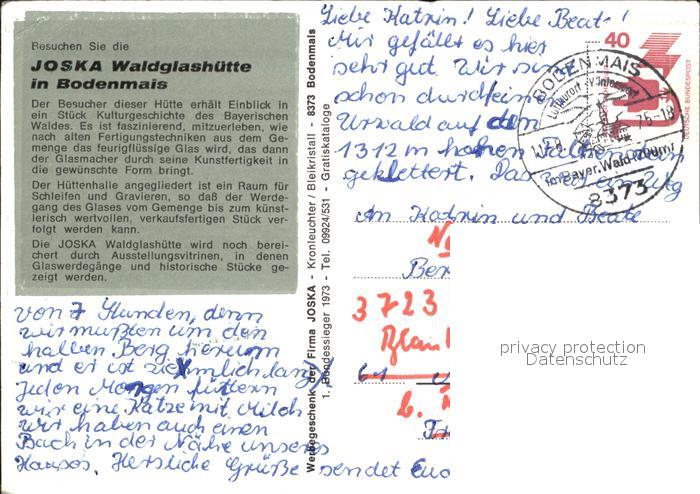 Besuchen Sie die
JOSKA Waldglashütte
in Bodenmais
Der Besucher dieser Hütte erhält Einblick in
ein Stück Kulturgeschichte des Bayerischen
Waldes. Es ist faszinierend, mitzuerleben, wie
nach alten Fertigungstechniken aus dem Ge-
menge das feurigflüssige Glas wird, das dann
der Glasmacher durch seine Kunstfertigkeit in
die gewünschte Form bringt.
Der Hüttenhalle angegliedert ist ein Raum für
Schleifen und Gravieren, so daß der Werde-
gang des Glases vom Gemenge bis zum künst-
lerisch wertvollen, verkaufsfertigen Stück ver-
folgt werden kann.
Die JOSKA Waldglashütte wird noch berei-
chert durch Ausstellungsvitrinen, in denen
Glaswerdegänge und historische Stücke ge-
zeigt werden.
Werbegeschenk der Firma JOSKA - Kronleuchter / Bleikristall - 8373 Bodenmais
1. Bundessieger 1973 - Tel. 09924/531 - Gratiskataloge
Liebe Katrin! Liebe Beate!
Mir gefällt es hier
sehr gut. Wir sind
schon durch einen
Urwald auf den
1312 m hohen
geklettert. Das
An Katrin und Beate
von 7 Stunden, denn
wir mußten um den
halben Berg herum
und er ist ziemlich lang
Jeden Morgen füttern
wir eine Katze mit Milch
Wir haben auch einen
Bach in der Nähe unseres
Hauses. Herzliche Grüße sendet Euch
40
DEUTSCHE BUNDESPOST
BODENMAIS
Luftkurort
75-18
im Bayer. Wald (700m)
8373
Ber
3723
Blan
61
6.
Fr
privacy protection
Datenschutz